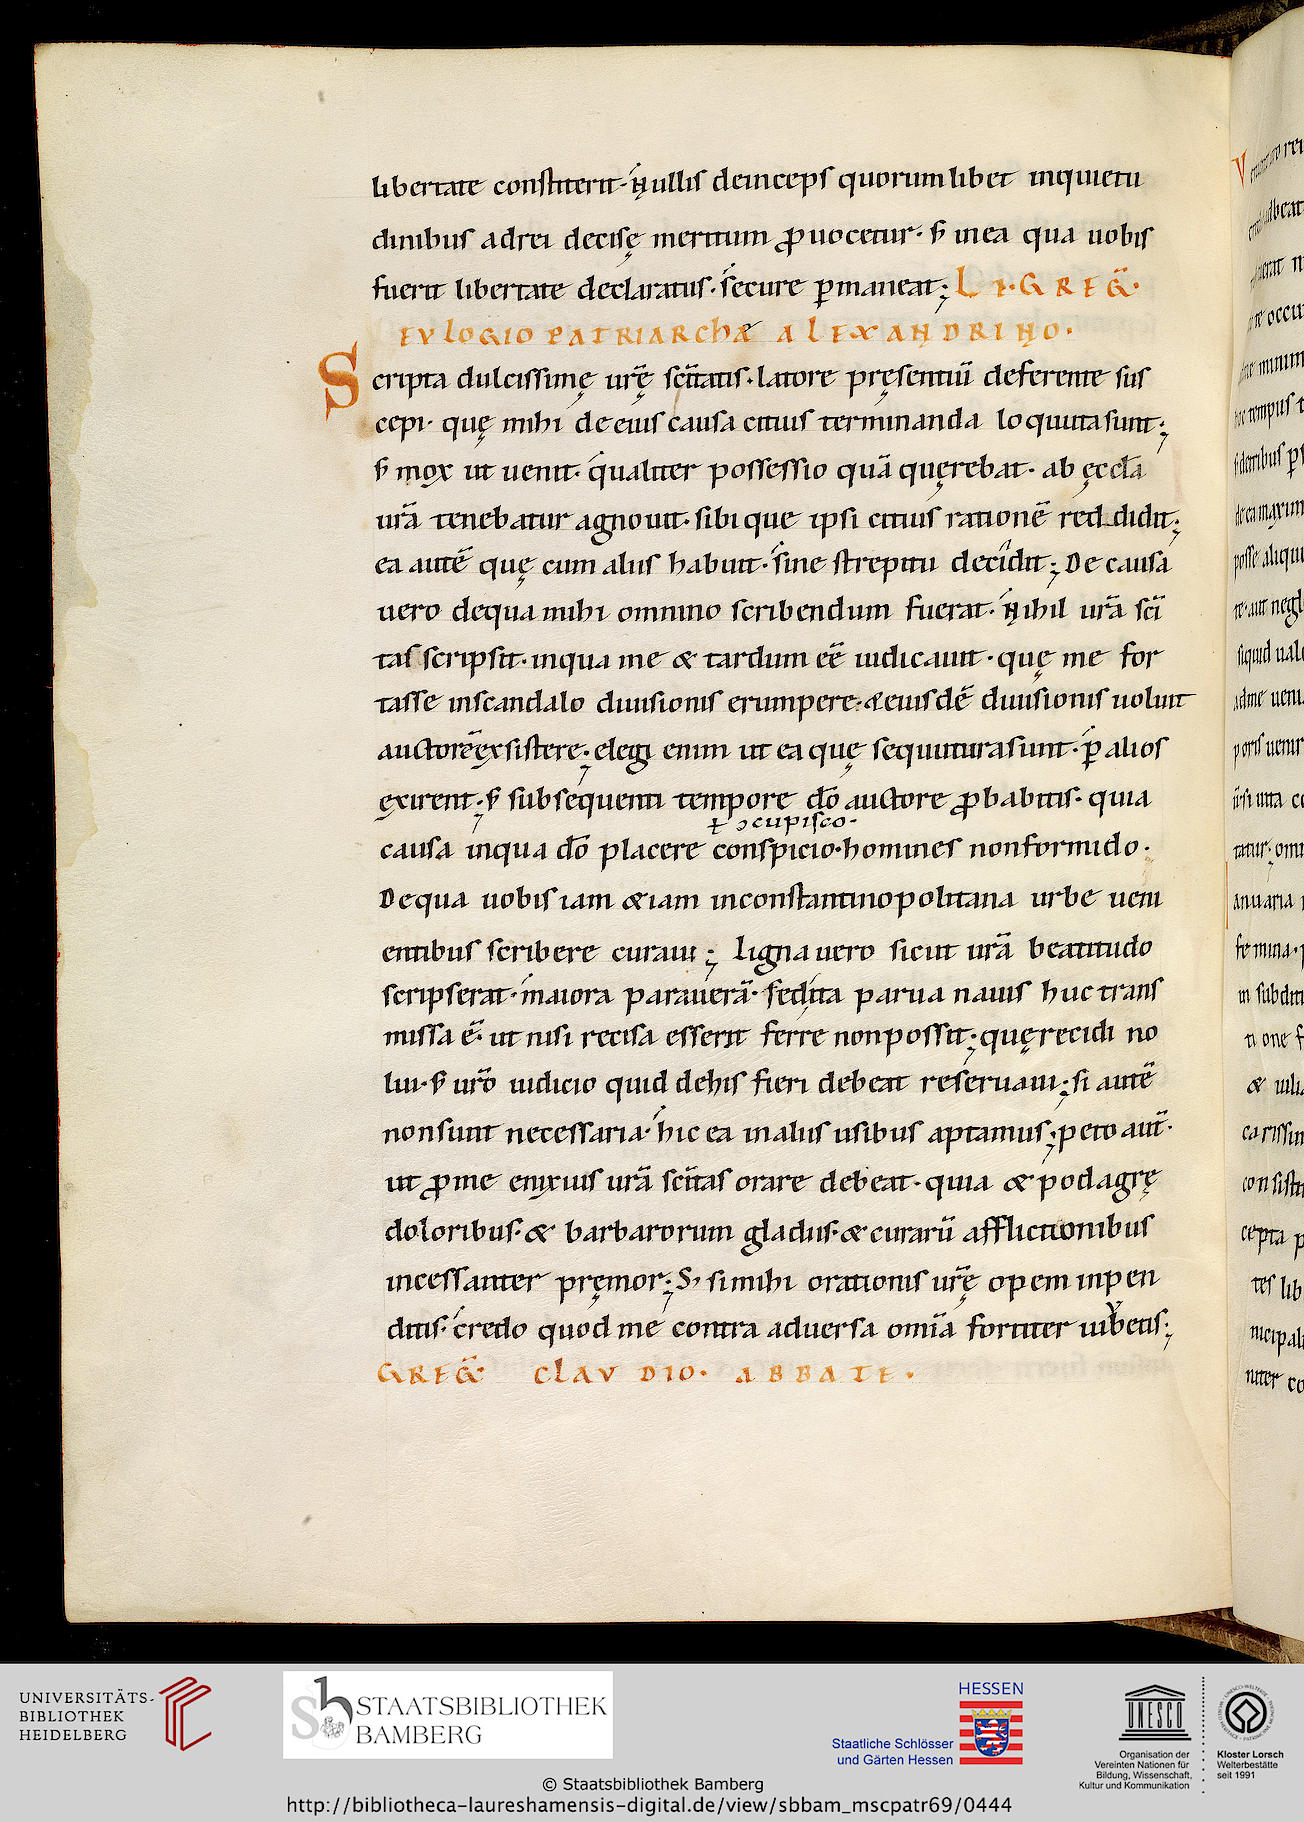 libertate constiterit· Nullis deinceps quorumlibet inquietu
dinibus adrei decisę meritum ꝓuocetur· s; inea qua uobis
fuerit libertate declaratus· secure p̲maneat; LI· GREG̅·
EVLOGIO PATRIARChÆ ALEXANDRINO·
Scripta dulcissimę ur̅ę sc̅itatis· latore pręsentiu̅ deferente sus
cepi· quę mihi deeius causa citius terminanda loquuta sunt;
s; mox ut uenit· qualiter possessio qua̅ quęrebat· ab ęccl̅a
ur̅a tenebatur agnouit· sibique ipsi citius ratione̅ reddidit;
ea aute̅ quę cum aliis habuit· sine strepitu decidit; De causa
uero dequa mihi omnino scribendum fuerat· Nihil ur̅a sc̅i
tas scripsit· inqua me & tardum ee̅ iudicauit· quę me for
tasse inscandalo diuisionis erumpere· & eiusde̅ diuisionis uoluit
auctore̅ exsistere; elegi enim ut ea quę sequutura sunt· p̲ alios
exirent; s; subsequenti tempore do̅ auctore ꝓbabitis· quia
ł ↄcupisco·
causa inqua do̅ placere conspicio· homines nonformido·
Dequa uobis iam &iam inconstantinopolitana urbe ueni
entibus scribere curaui; ligna uero sicut ur̅a beatitudo
scripserat· maiora parauera̅· sed ita parua nauis huc trans
missa e̅· ut nisi recisa esserit ferre nonpossit; quę recidi no
lui· s; ur̅o iudicio quid dehis fieri debeat reseruaui; si aute̅
nonsunt necessaria· hic ea inaliis usibus aptamus; peto aut̅·
ut ꝓme enixius ur̅a sc̅itas orare debeat· quia & podagrę
doloribus· & barbarorum gladiis· & curaru̅ afflictionibus
incessanter pręmor; S; simihi orationis ur̅ę opem inpen
ditis· credo quod me contra aduersa omi̅a fortiter iuvbetis;
GREG̅· CLAVDIO· ABBATE·
UNIVERSITÄTS-
BIBLIOTHEK
HEIDELBERG
STAATSBIBLIOTHEK
BAMBERG
HESSEN
Staatliche Schlösser
und Gärten Hessen
UNESCO
Organisation der
Vereinten Nationen für
Bildung, Wissenschaft,
Kultur und Kommunikation
Kloster Lorsch
Welterbestätte
seit 1991
© Staatsbibliothek Bamberg
http://bibliotheca-laureshamensis-digital.de/view/sbbam_mscpatr69/0444